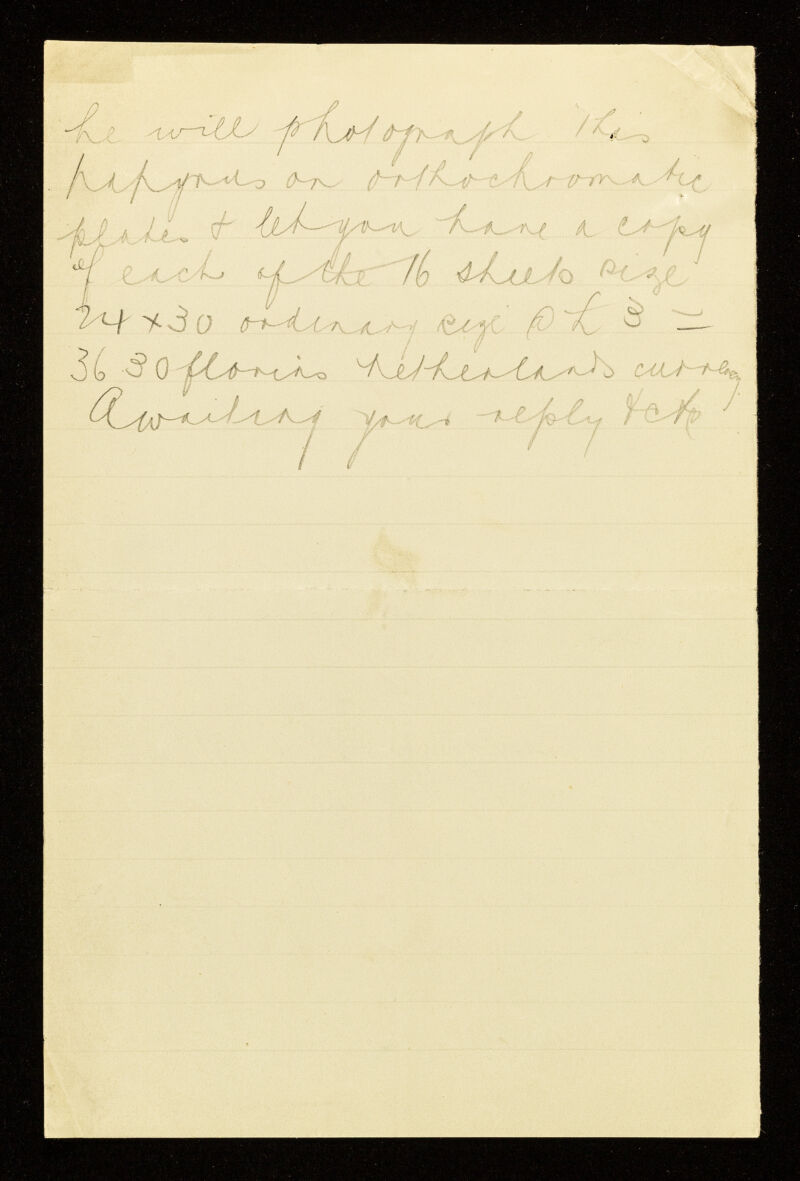 he will photograph this
papyrus on orthochromatic
plates & let you have a copy
of each of the 16 sheets size
24 x 30 ordinary size @ £ 3 =
36 30 florins Netherlands currency
Awaiting your reply &c &c